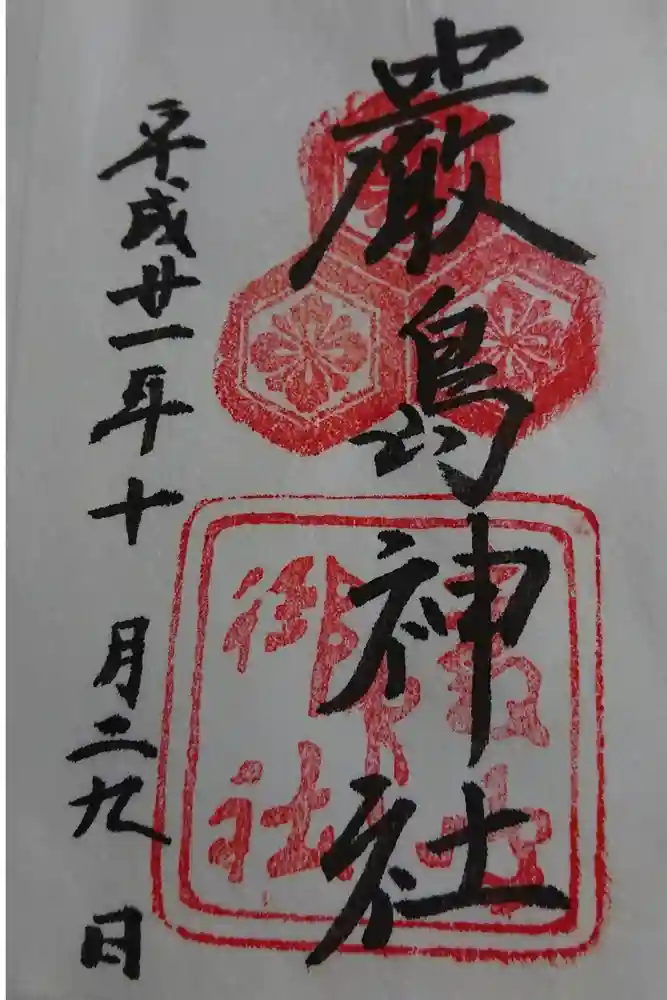 嚴島神社
平成廿一年十月二九日
御社